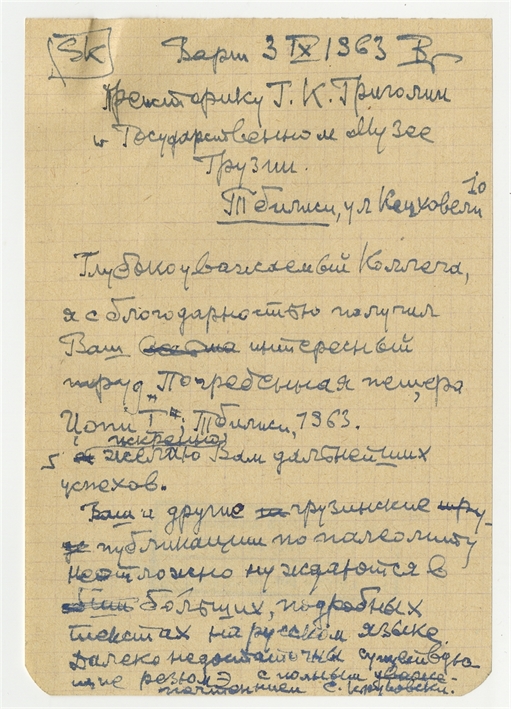 SK Варш 3 IX 1963
Преисторику Г. К. Григолии
в Государственном Музее
Грузии.
Тбилиси, ул Кецховели 10
Глубокоуважаемый Коллега,
я с благодарностью получил
Ваш интересный
труд „Погребенная пещера
Цопи I", Тбилиси, 1963.
искренно
желаю Вам дальнейших
успехов.
Ваш и другие грузинские
публикации по палеолиту
неотложно нуждаются в
больших, подробных
текстах на русском языке.
Далеко недостаточны существую-
щие резюмэ с полным уваже-
почтением С. Круковски.